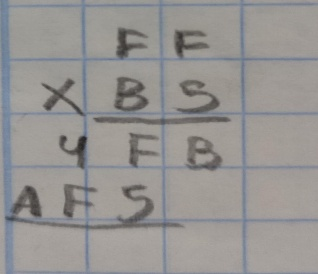 F F
X B S
4 F B
A F S